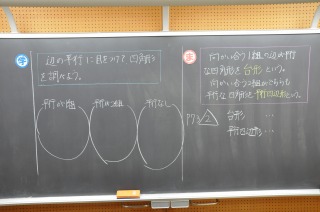 学
辺の平行に目をつけて四角形
を調べよう。
平行が1組
平行が2組
平行なし
ま
向かい合う1組の辺が平行
な四角形を台形という。
向かい合う2組の辺がどちらも
平行な四角形を平行四辺形という。
台形 …
平行四辺形 …